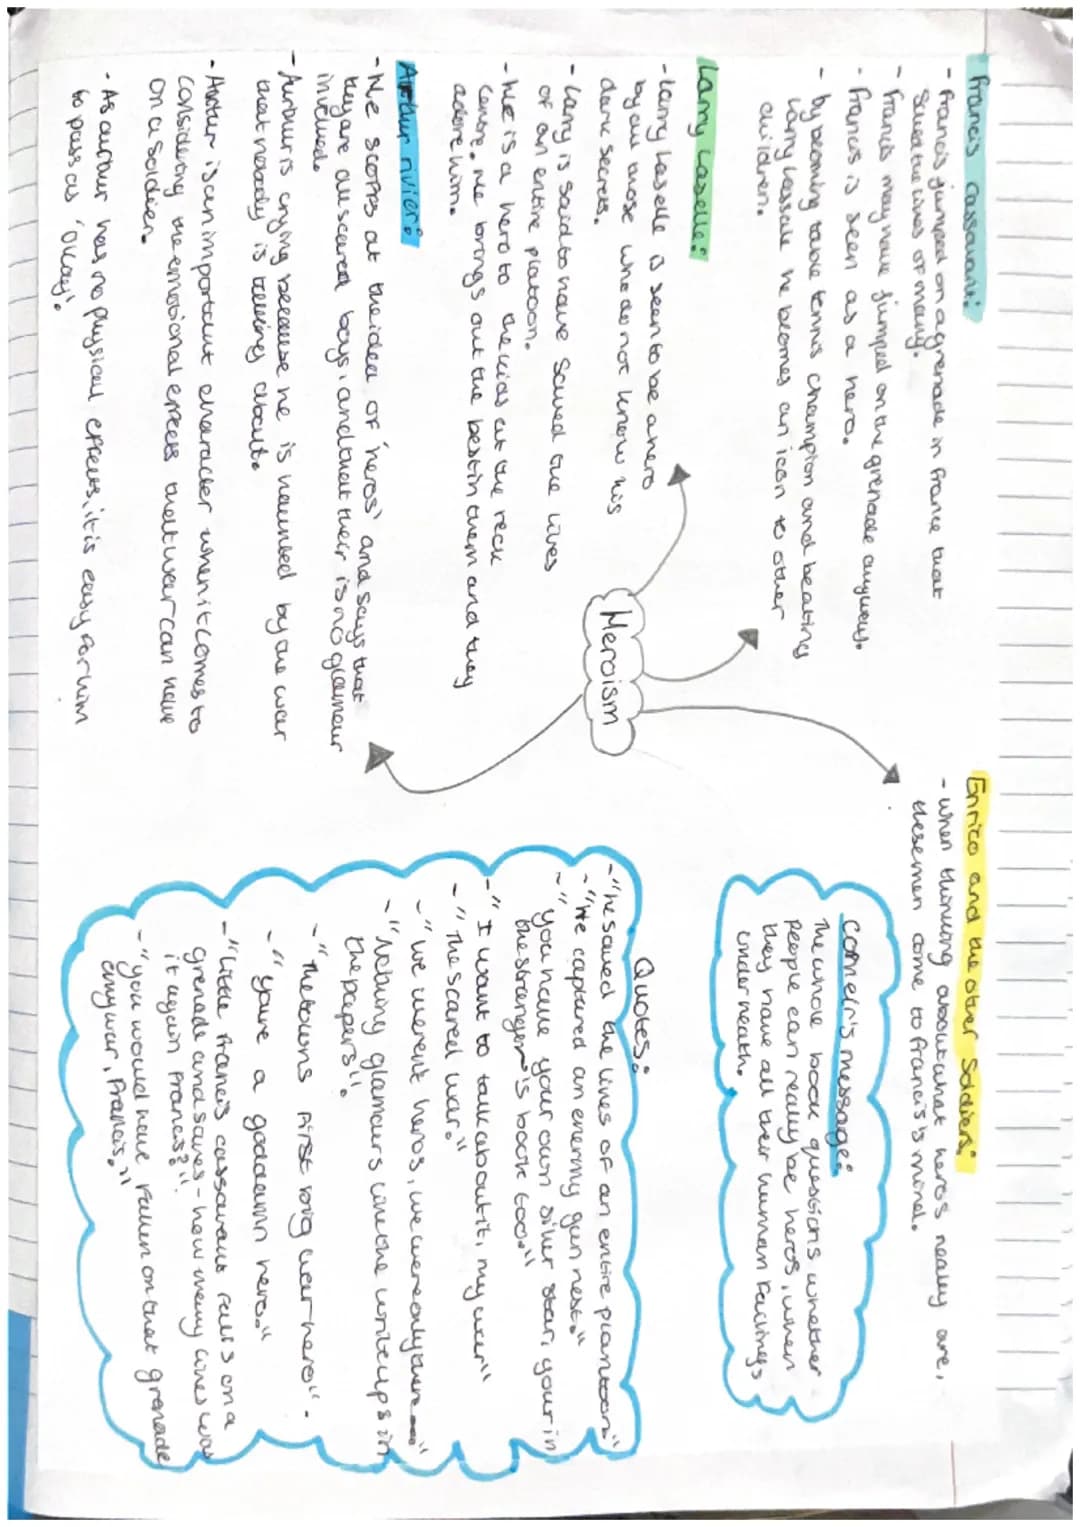 Francis cassavant:
- Francis jumped on a grenade in France that
saved the lives of many.
- Francis may have jumped on the grenade anyway.
- Francis is seen as a hero.
- by becoming table tennis champion and beating
Larry lassale he becomes an icon to other
children.
Larry Laselle:
- Larry Laselle is seen to be a hero
by all those who do not know his
dark secrets.
- Larry is said to have saved the lives
of an entire platoon.
- He is a hero to the kids at the reck
centre. He brings out the best in them and they
adore him.
Arthur rivier:
- He scoffs at the idea of 'heros' and says that
they are all scared boys, and that their is no glamour
involved.
- Arthur is crying because he is haunted by the war
that nobody is talking about.
- Arthur is an important character when it comes to
considering the emotional effects that war can have
on a soldier.
- As arthur has no physical effects, it is easy for him
to pass as 'Okay'.
Heroism
Enrico and the other soldiers:
- when thinking about what heros really are,
these men come to francis's mind.
Cormeir's message:
The whole book questions whether
people can really be heros, when
they have all their human failings
underneath.
Quotes:
- "he saved the lives of an entire plantoon"
- "He captured an enemy gun nest."
- "you have your own silver star, your in
the stranger's book too."
- "I want to talk about it, my war"
- "The scared war."
- "we werent heros, we were only there"
- "Nothing glamours like the write ups in
the papers".
- "The towns first big war hero" -
- "youre a goddamn hero."
- "Little francis cassavant falls on a
grenade and saves - how many lives was
it again Francis?".
- "you would have fallen on that grenade
anyway, Francis."